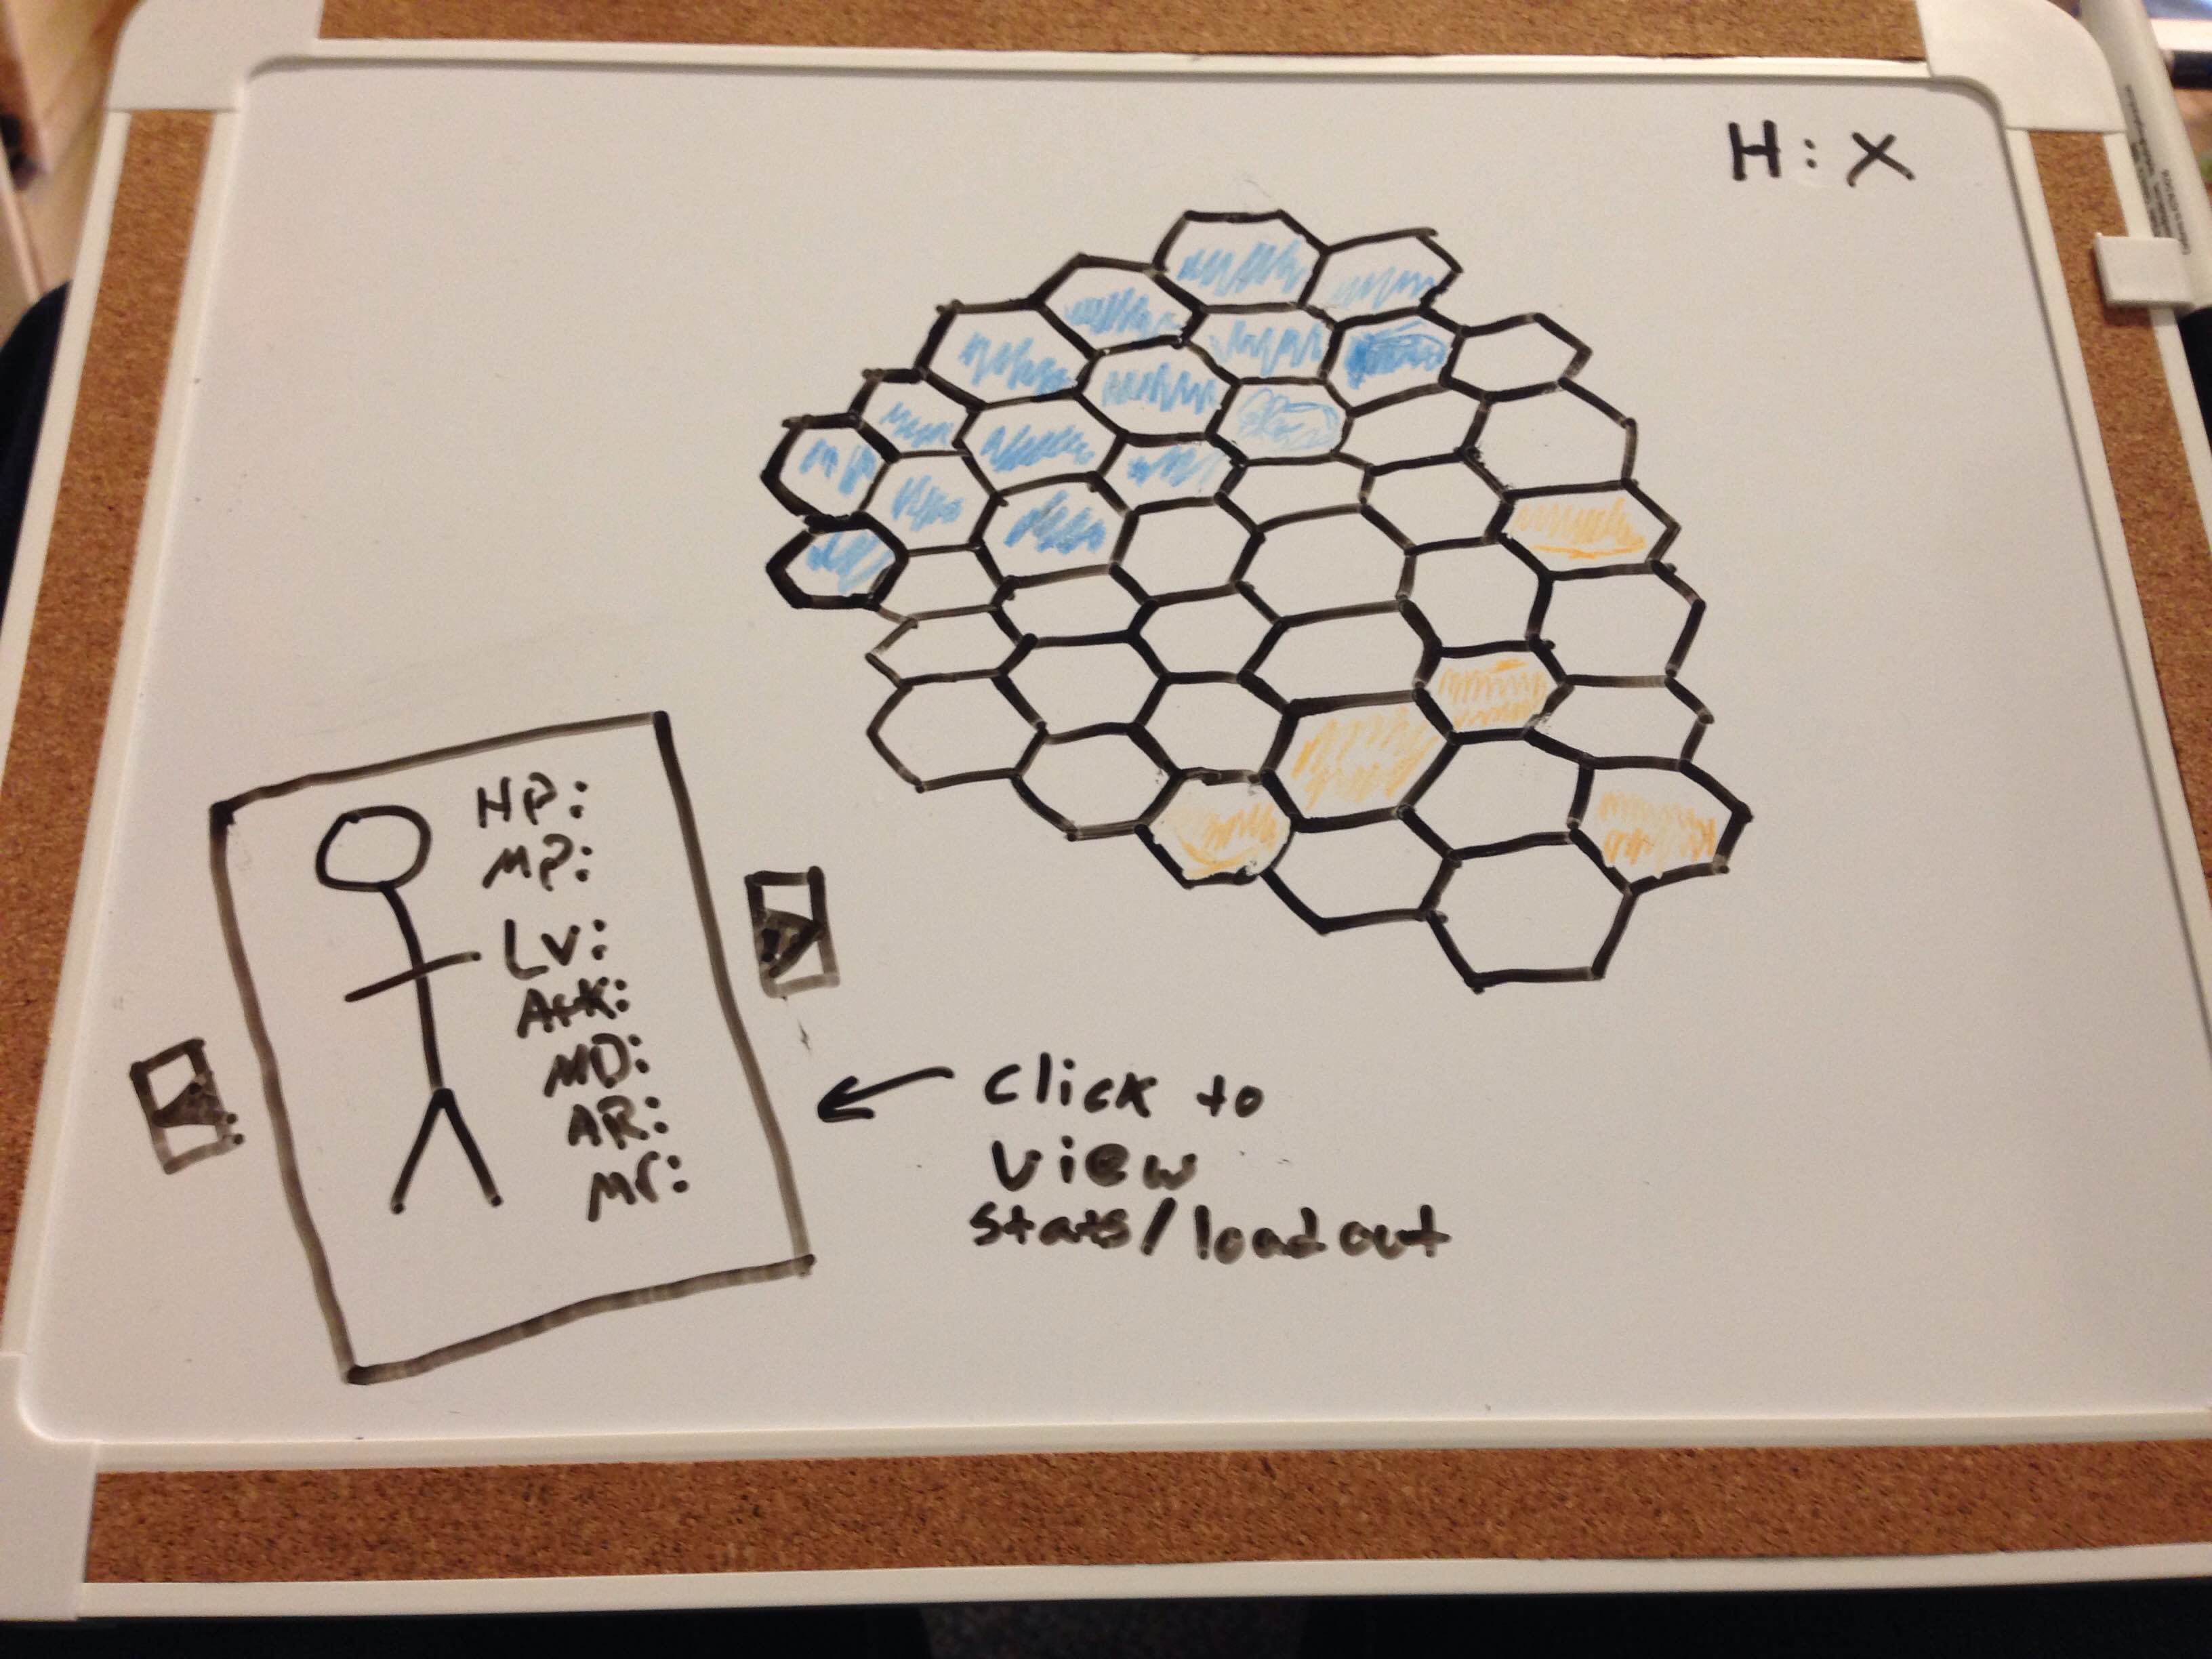 H: X
HP:
MP:
LV:
Atk:
MD:
AR:
Mr:
click to
view
stats/loadout